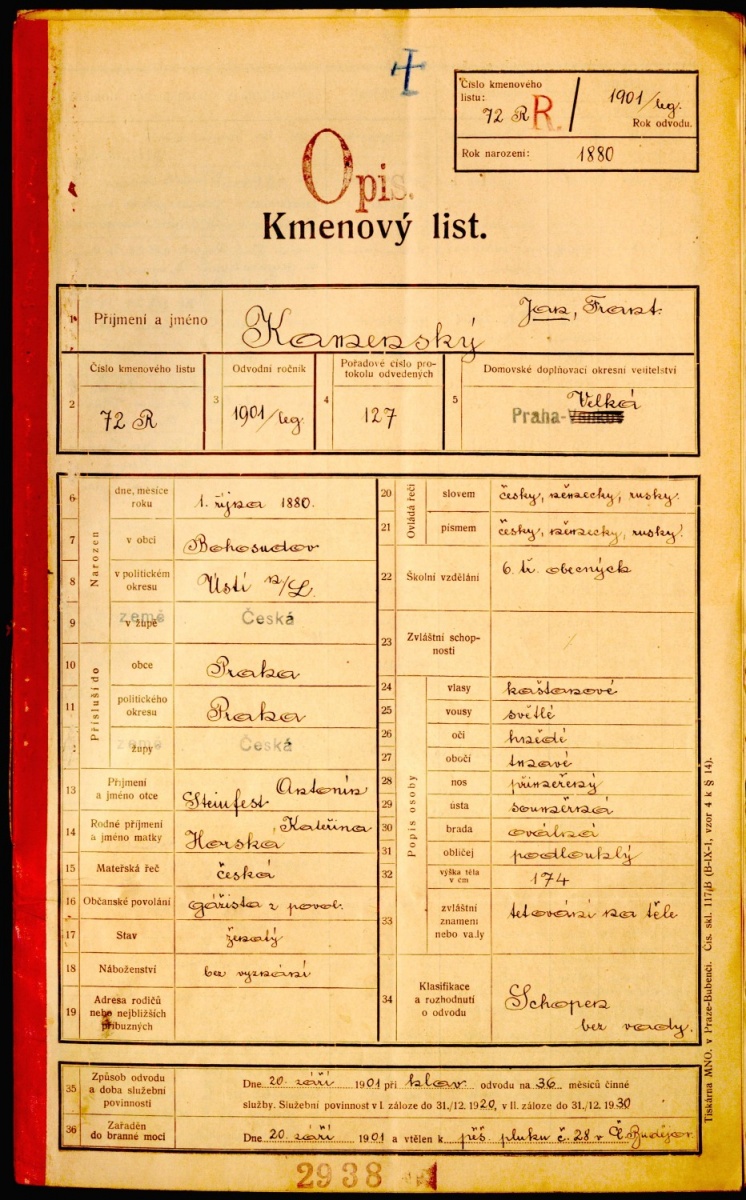 Číslo kmenového
listu: 72 R R. / 1901/leg.
Rok odvodu.
Rok narození: 1880
Opis.
Kmenový list.
1 Příjmení a jméno Kamenský Jan, Frant.
2 Číslo kmenového listu 72 R
3 Odvodní ročník 1901/leg.
4 Pořadové číslo pro-
tokolu odvedených 127
5 Domovské doplňovací okresní velitelství
Praha- Velká
Narozen
6 dne, měsíce
roku 1. října 1880.
7 v obci Bohosudov
8 v politickém
okresu Ústí n/L.
9 země
v župě Česká
Přísluší do
10 obce Praha
11 politického
okresu Praha
země
župy Česká
13 Příjmení
a jméno otce Steinfest Antonín
14 Rodné příjmení
a jméno matky Horská Kateřina
15 Mateřská řeč česká
16 Občanské povolání gážista z povol.
17 Stav ženatý
18 Náboženství bez vyznání
19 Adresa rodičů
nebo nejbližších
příbuzných
Ovládá řeči
20 slovem česky, německy, rusky.
21 písmem česky, německy, rusky.
22 Školní vzdělání 6. tř. obecných
23 Zvláštní schop-
nosti
Popis osoby
24 vlasy kaštanové
25 vousy světlé
26 oči hnědé
27 obočí tmavé
28 nos přiměřený
29 ústa souměrná
30 brada oválná
31 obličej podlouhlý
32 výška těla
v cm 174
33 zvláštní
znamení
nebo vady tetování na těle
34 Klasifikace
a rozhodnutí
o odvodu Schopen
bez vady.
35 Způsob odvodu
a doba služební
povinnosti
Dne 20. září 1901 při hlav. odvodu na 36 měsíců činné
služby. Služební povinnost v I. záloze do 31./12. 1920, v II. záloze do 31./12. 1930
36 Zařaděn
do branné moci
Dne 20. září 1901 a vtělen k pěš. pluku č. 28 v Č. Budějov.
2938
Tiskárna MNO. v Praze-Bubenči. Čís. skl. 117/B (B-IX-1, vzor 4 k § 14).